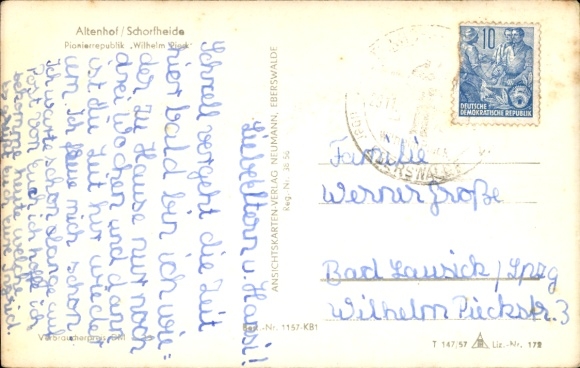 Altenhof / Schorfheide
Pionierrepublik „Wilhelm Pieck"
Liebe Eltern u. Hansi!
Schnell vergeht die Zeit
hier bald bin ich wie-
der zu Hause nur noch
drei Wochen und dann
ist die Zeit hir wieder
um. Ich freue mich schon
Ich warte schon solange auf
Post von Euch ich hoffe ich
bekomme heute welche
Es grüßt Euch Eure
Verbraucherpreis DM
ANSICHTSKARTEN-VERLAG NEUMANN, EBERSWALDE
Reg.-Nr. 38-56
Reg.-Nr. 1157-KB1
10
DEUTSCHE
DEMOKRATISCHE REPUBLIK
EBERSWALDE
Familie
Werner Große
Bad Lausick / Lpzg
Wilhelm Pieckstr. 3
T 147/57
Liz.-Nr. 178